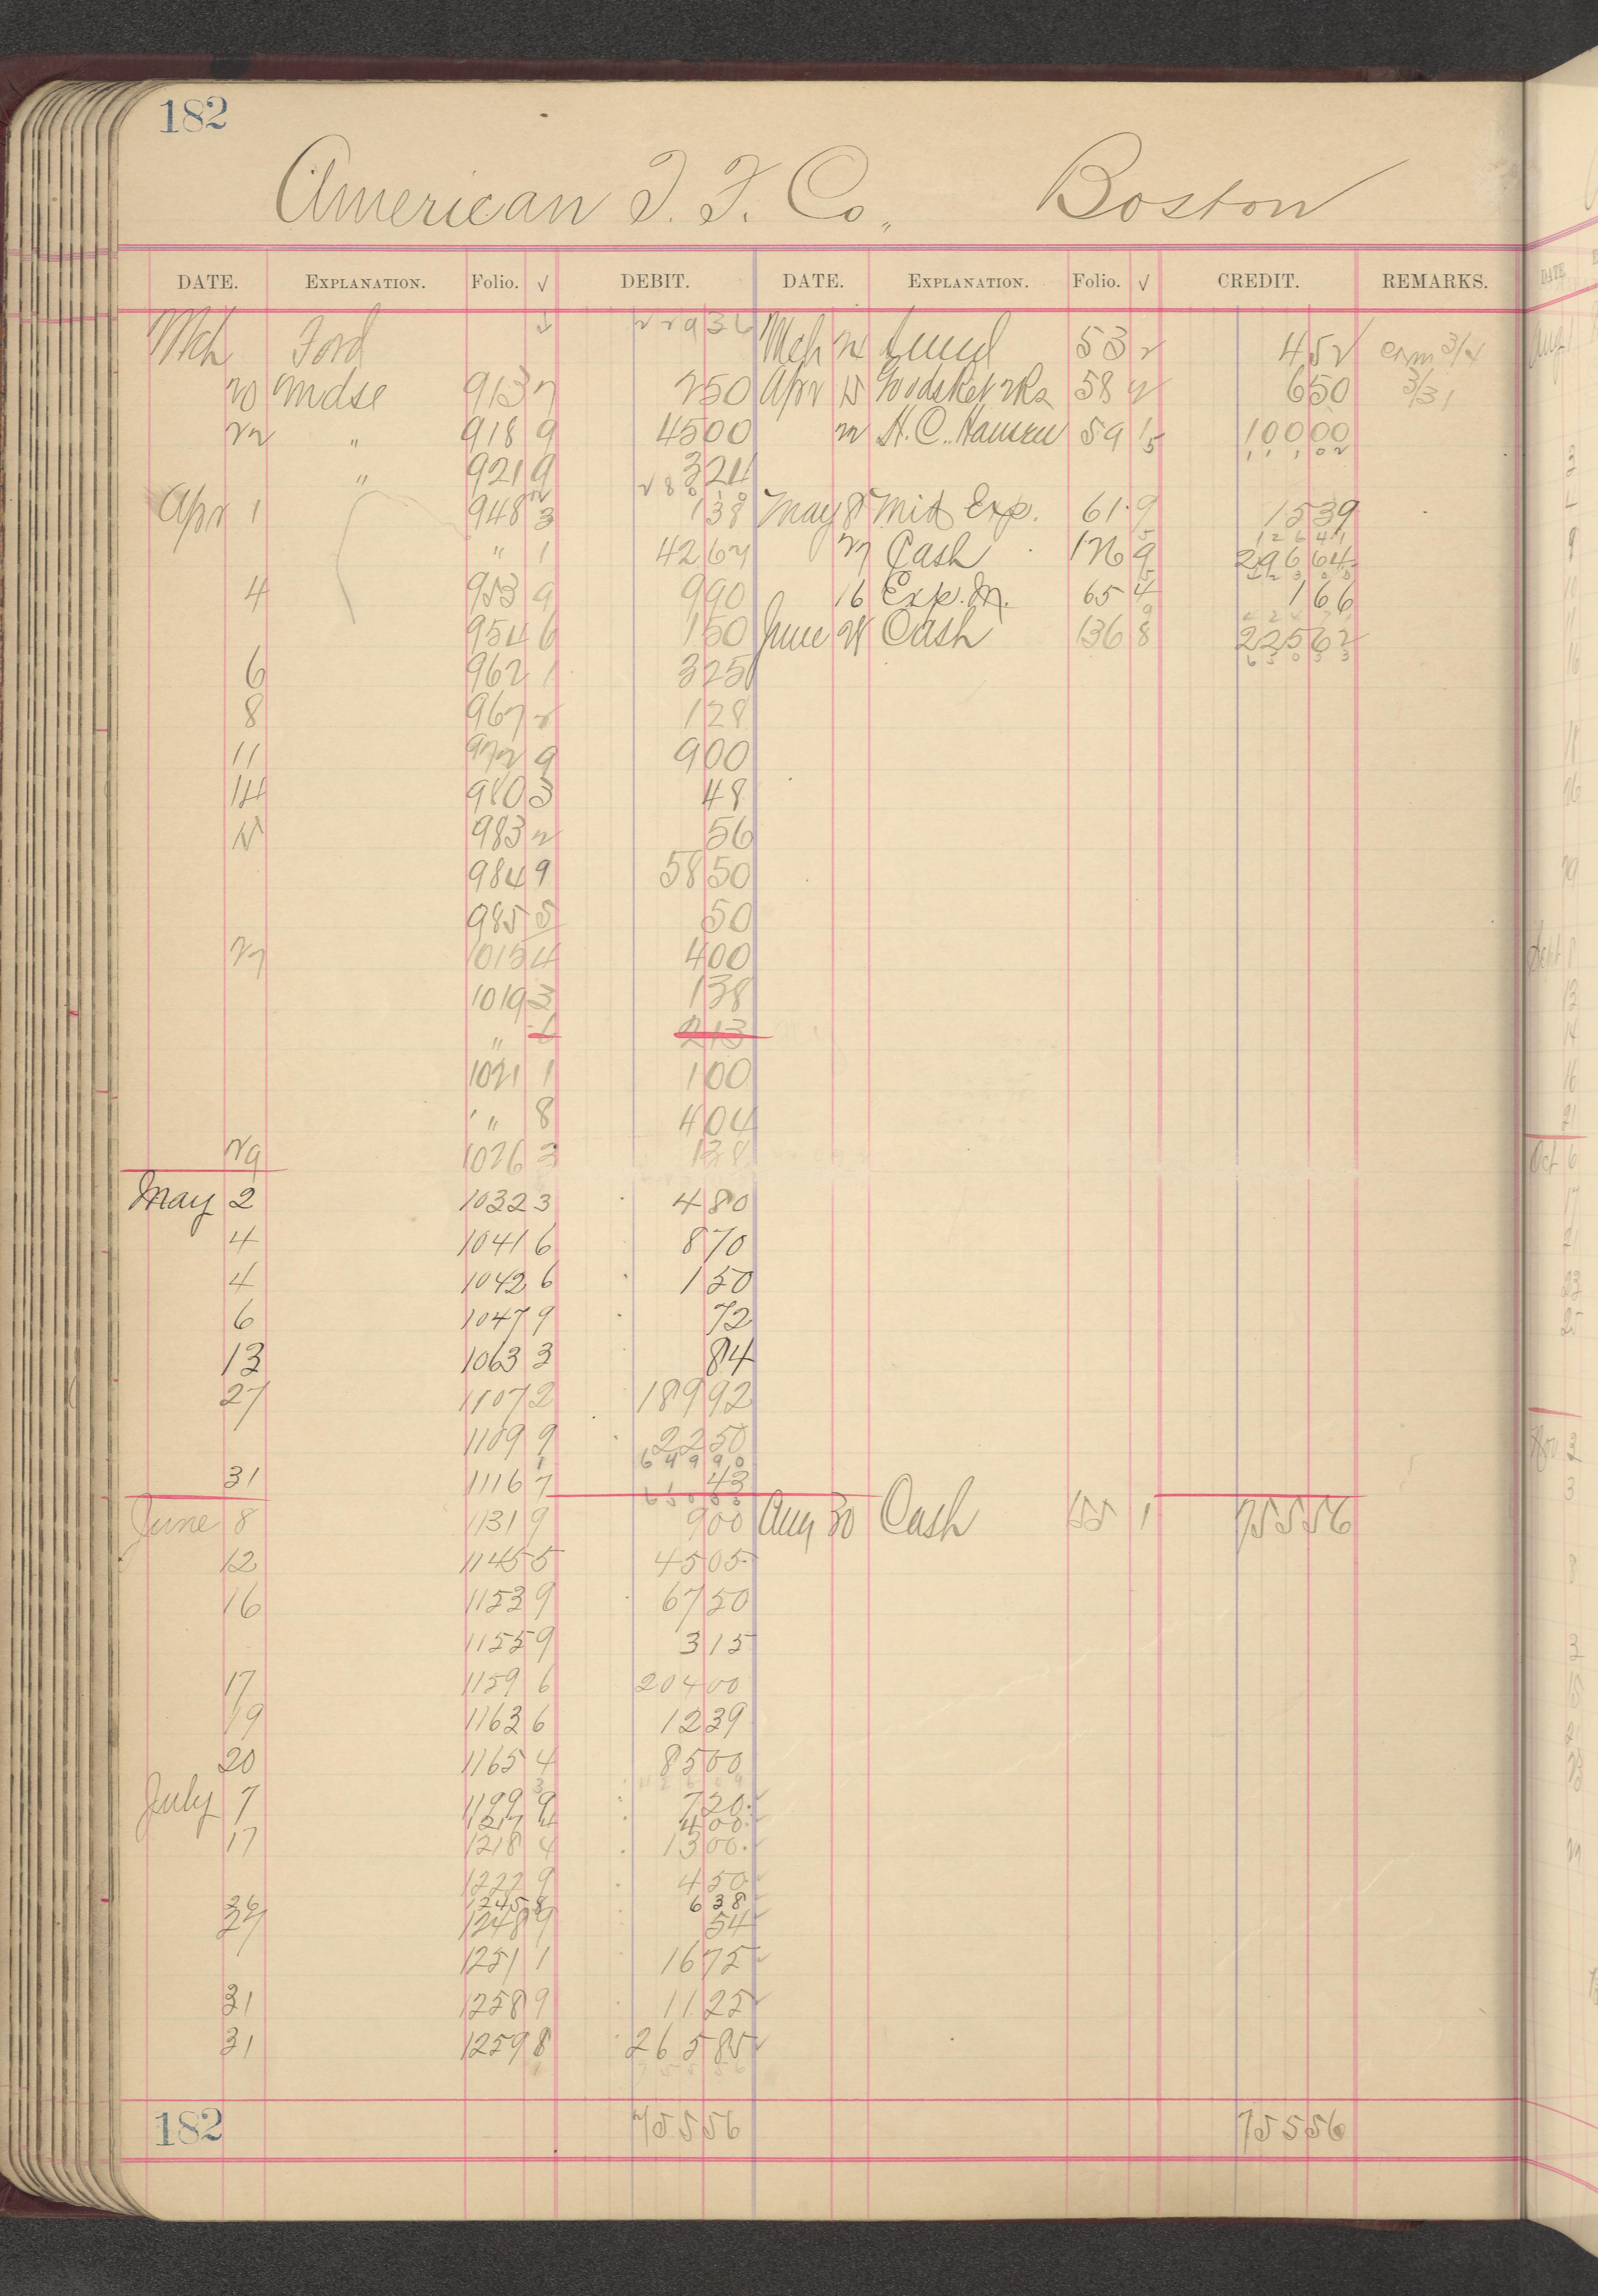 182
American T. F. Co., Boston
DATE. EXPLANATION. Folio. √ DEBIT. DATE. EXPLANATION. Folio. √ CREDIT. REMARKS.
Mch Ford 229 36 Mch 53 2 4 52 3/4
20 Mdse 913 7 2 50 Apr 15 Goods Ret 58 2 6 50 3/31
22 " 918 9 45 00 22 H. C. Hansen 59 5 100 00
" 921 9 3 24
Apr 1 948 3 1 38 May 8 Mid Exp. 61 9 15 39
" 1 42 67 27 Cash 126 9 296 64
4 953 9 9 90 16 Exp. M. 65 4 1 66
954 6 1 50 June 28 Cash 136 8 225 62
6 962 1 3 25
8 967 2 1 28
11 972 9 9 00
14 980 3 48
15 983 2 56
984 9 58 50
985 5 50
27 1015 4 4 00
1019 3 1 38
" 2 13
1021 1 1 00
" 8 4 04
29 1026 3 1 38
May 2 1032 3 4 80
4 1041 6 8 70
4 1042 6 1 50
6 1047 9 72
13 1063 3 84
27 1107 2 189 92
1109 9 22 50
649 90
31 1116 7 43
June 8 1131 9 9 00 Aug 30 Cash 155 1 755 56
12 1145 5 45 05
16 1153 9 67 50
1155 9 3 15
17 1159 6 204 00
19 1163 6 12 39
20 1165 4 85 00
July 7 1199 9 7 20
1217 4 4 00
17 1218 4 13 00
1222 9 4 50
26 1245 8 6 38
27 1248 9 54
1251 1 16 75
31 1258 9 11 25
31 1259 8 265 85
182 755 56 755 56